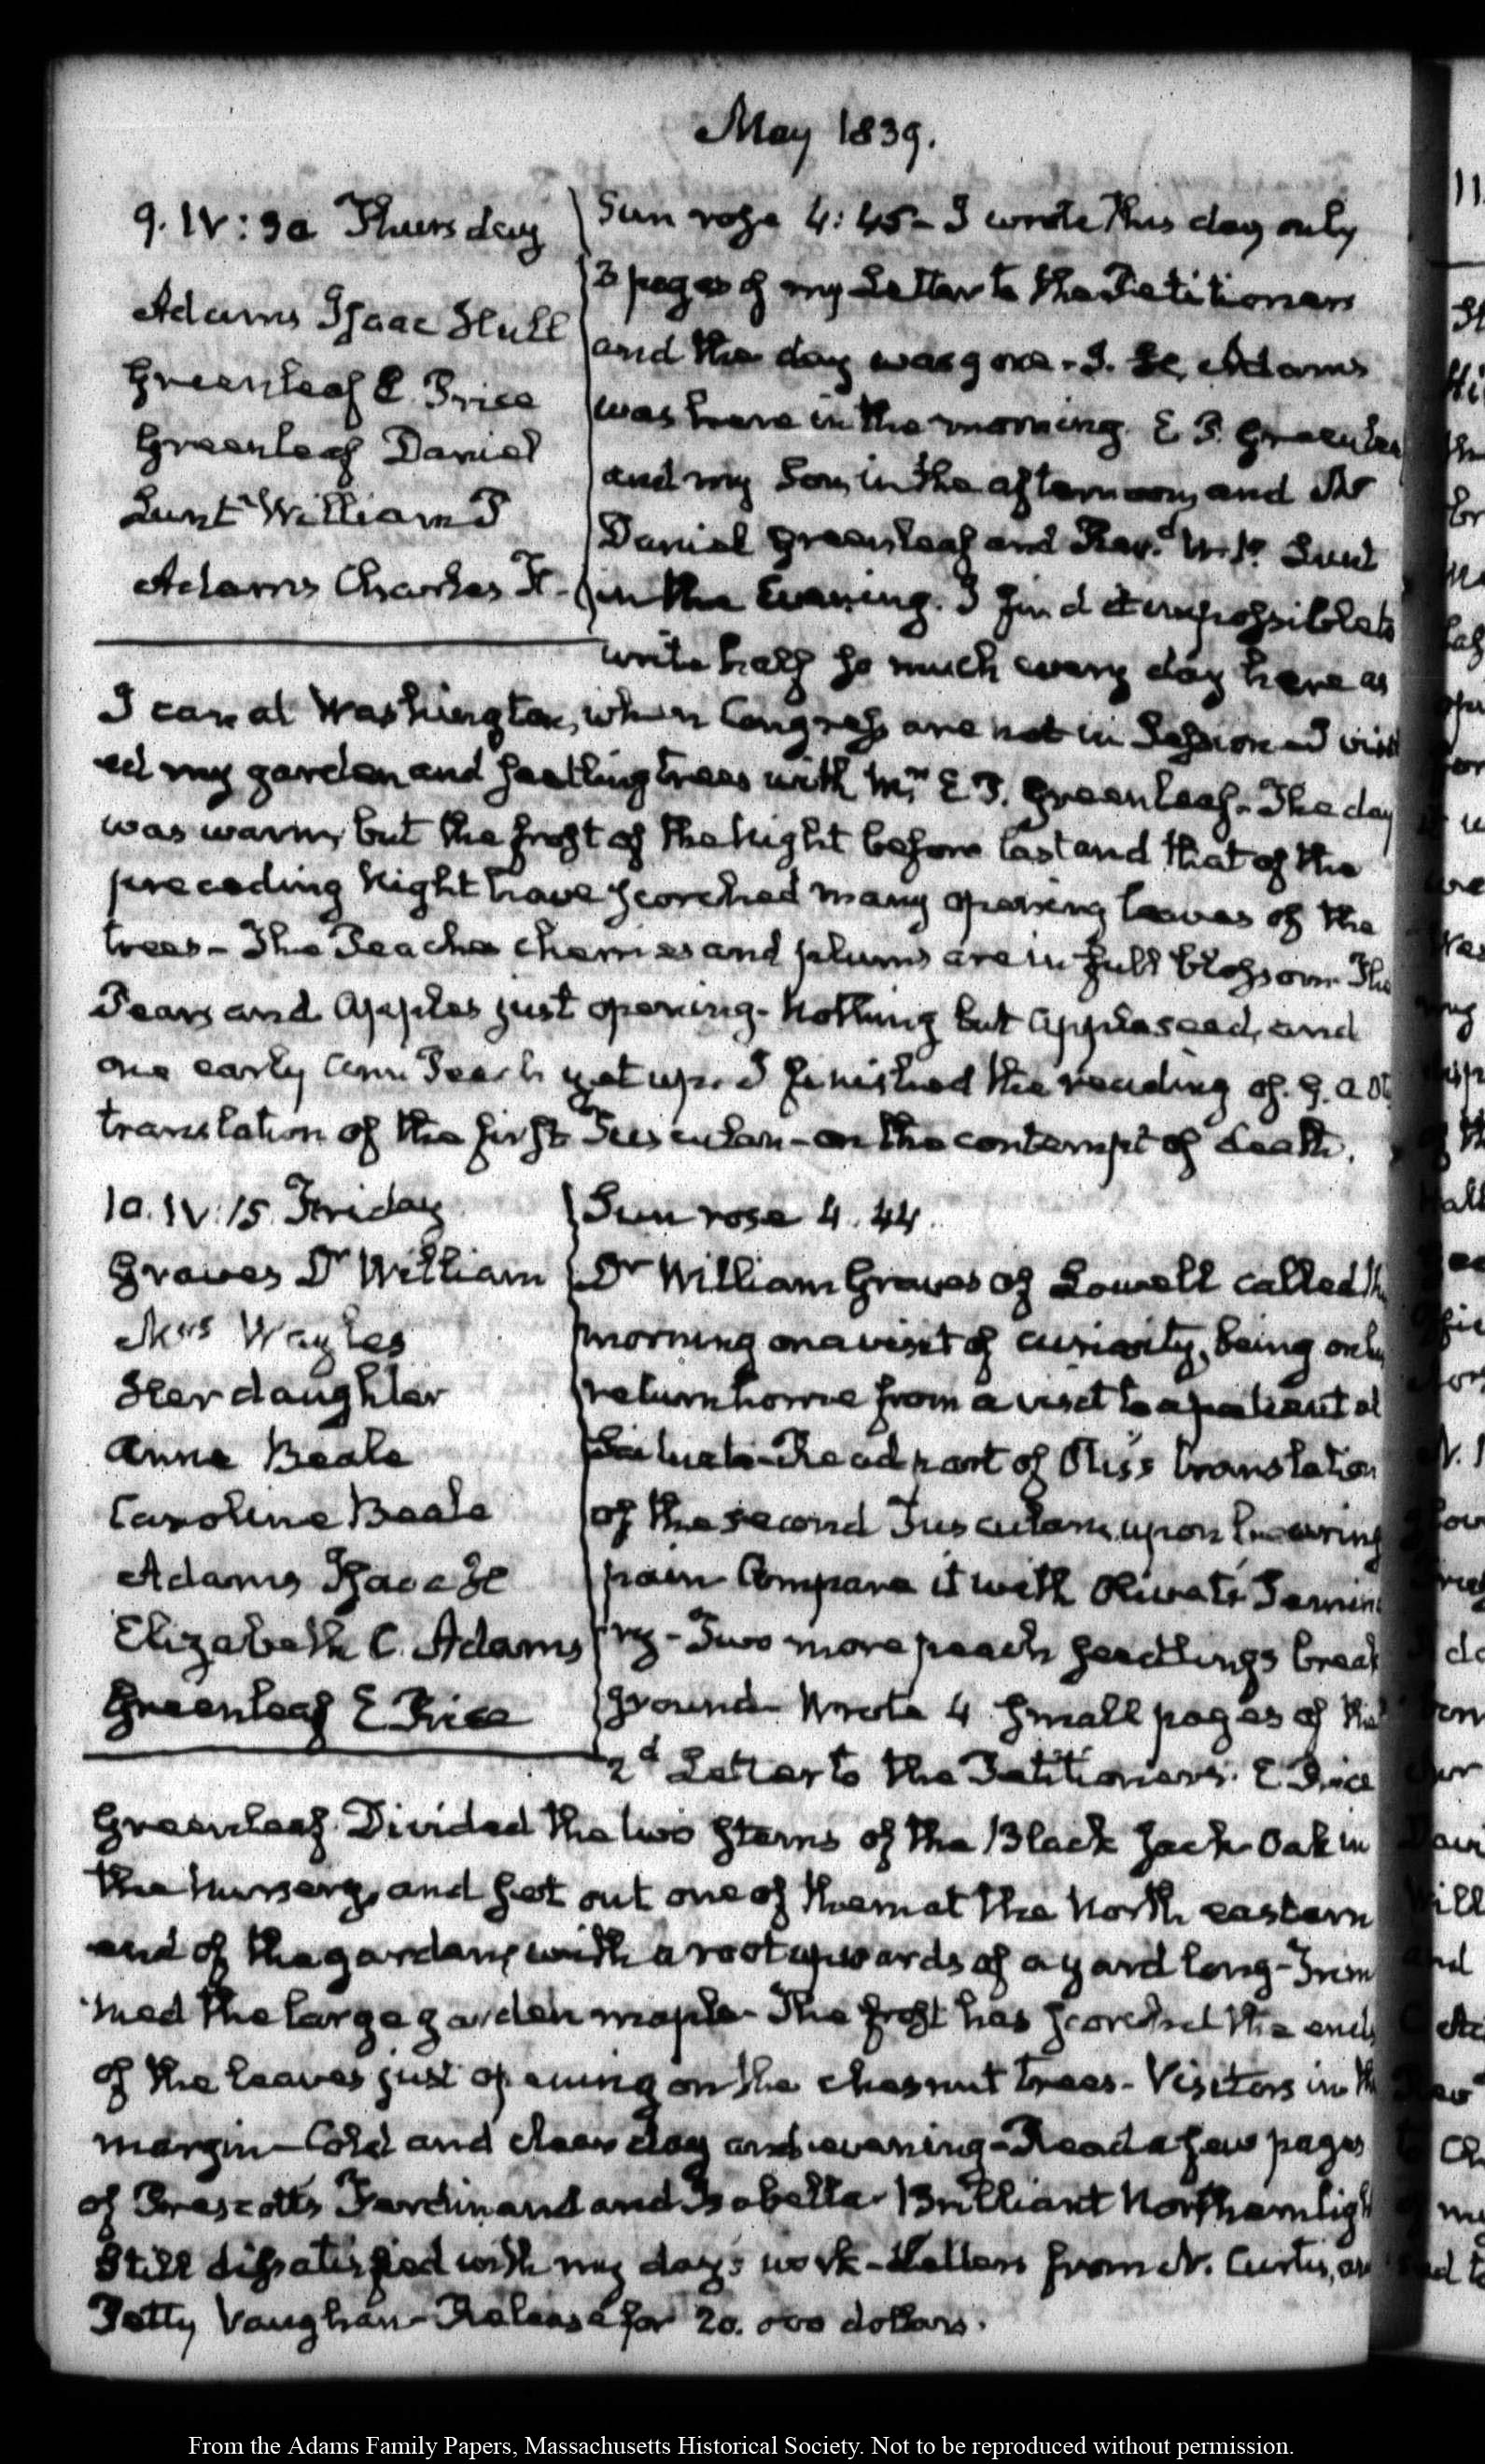 May 1839.
9. IV:30 Thursday
Adams Isaac Hull
Greenleaf E. Price
Greenleaf Daniel
Lunt William P
Adams Charles F.
Sun rose 4:45 - I wrote this day only
3 pages of my Letter to the Petitioners
and the day was gone - I. H. Adams
was here in the morning. E P. Greenleaf
and my Son, in the afternoon, and Mr
Daniel Greenleaf and Revd. W. P. Lunt
in the Evening. I find it impossible to
write half so much every day here as
I can at Washington, when Congress are not in Session - I visit
ed my garden and seedling trees with Mr. E P. Greenleaf - The day
was warm, but the frost of the Night before last and that of the
preceding Night have scorched many opening leaves of the
trees - The Peaches cherries and plums are in full blossom The
Pears and Apples just opening - Nothing but Appleseed, and
one early Ann Peach yet up. I finished the reading of G. A Ot
translation of the first Tusculan - on the contempt of death.
10. IV:15. Friday
Graves Dr William
Mrs Wayles
Her daughter
Anne Beale
Caroline Beale
Adams Isaac H
Elizabeth C. Adams
Greenleaf E. Price
Sun rose 4.44.
Dr William Graves of Lowell called
morning on a visit of curiosity, being on
return home from a visit to a patient at
Scituate - Read part of Otis's translation
of the second Tusculan, upon
pain Compare it with Olivet's
Two more peach seedlings break
ground - Wrote 4 small pages of the
2d Letter to the Petitioners. E Price
Greenleaf. Divided the two stems of the Black Jack Oak in
the Nursery, and set out one of them at the North eastern
end of the garden, with a root upwards of a yard long - Trim
med the large garden maple - The frost has scorched the ends
of the leaves just opening on the chesnut trees - Visitors in the
margin - Cold and clear day and evening - Read a few pages
of Prescott's Ferdinand and Isabella - Brilliant Northern ligh
Still dissatisfied with my day's work - Letters from N. Curtis, an
Petty Vaughan - Release for 20.000 dollars.
From the Adams Family Papers, Massachusetts Historical Society. Not to be reproduced without permission.